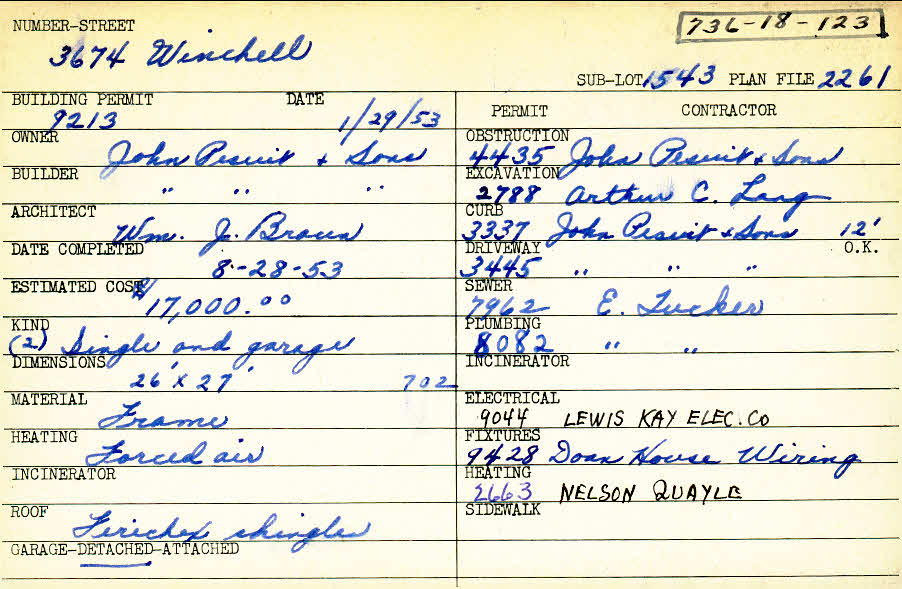 NUMBER-STREET
736-18-123
3674 Winchell
SUB-LOT 1543 PLAN FILE 2261
BUILDING PERMIT DATE
9213 1/29/53
OWNER
John Pesuit & Sons
BUILDER
" " "
ARCHITECT
Wm. J. Braun
DATE COMPLETED
8-28-53
ESTIMATED COST
$17,000.00
KIND
(2) Single and garage
DIMENSIONS
26' x 27' 702
MATERIAL
Frame
HEATING
Forced air
INCINERATOR
ROOF
shingles
GARAGE-DETACHED-ATTACHED
PERMIT CONTRACTOR
OBSTRUCTION
4435 John Pesuit & Sons
EXCAVATION
2788 Arthur C. Lang
CURB
3337 John Pesuit & Sons 12'
DRIVEWAY O.K.
3445 " " "
SEWER
7962 E. Tucker
PLUMBING
8082 " "
INCINERATOR
ELECTRICAL
9044 LEWIS KAY ELEC. CO
FIXTURES
9428 Doan House Wiring
HEATING
2663 NELSON QUAYLE
SIDEWALK